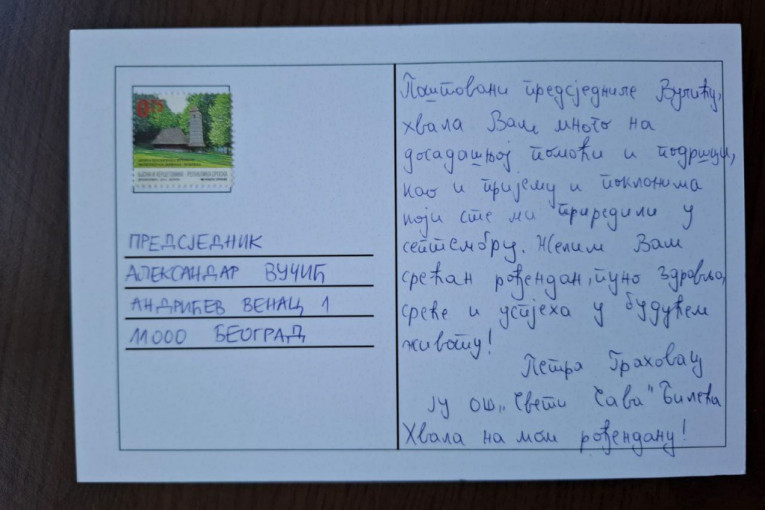 0,75
БОСНА И ХЕРЦЕГОВИНА РЕПУБЛИКА СРПСКА
ПРЕДСЈЕДНИК
АЛЕКСАНДАР ВУЧИЋ
АНДРИЋЕВ ВЕНАЦ 1
11000 БЕОГРАД
Поштовани предсједниче Вучићу,
хвала Вам много на
досадашњој помоћи и подршци,
као и пријему и поклонима
који сте ми приредили у
септембру. Желим Вам
срећан рођендан, пуно здравља,
среће и успјеха у будућем
животу!
Петра Граховац
ЈУ ОШ „Свети Сава" Билећа
Хвала на мом рођендану!